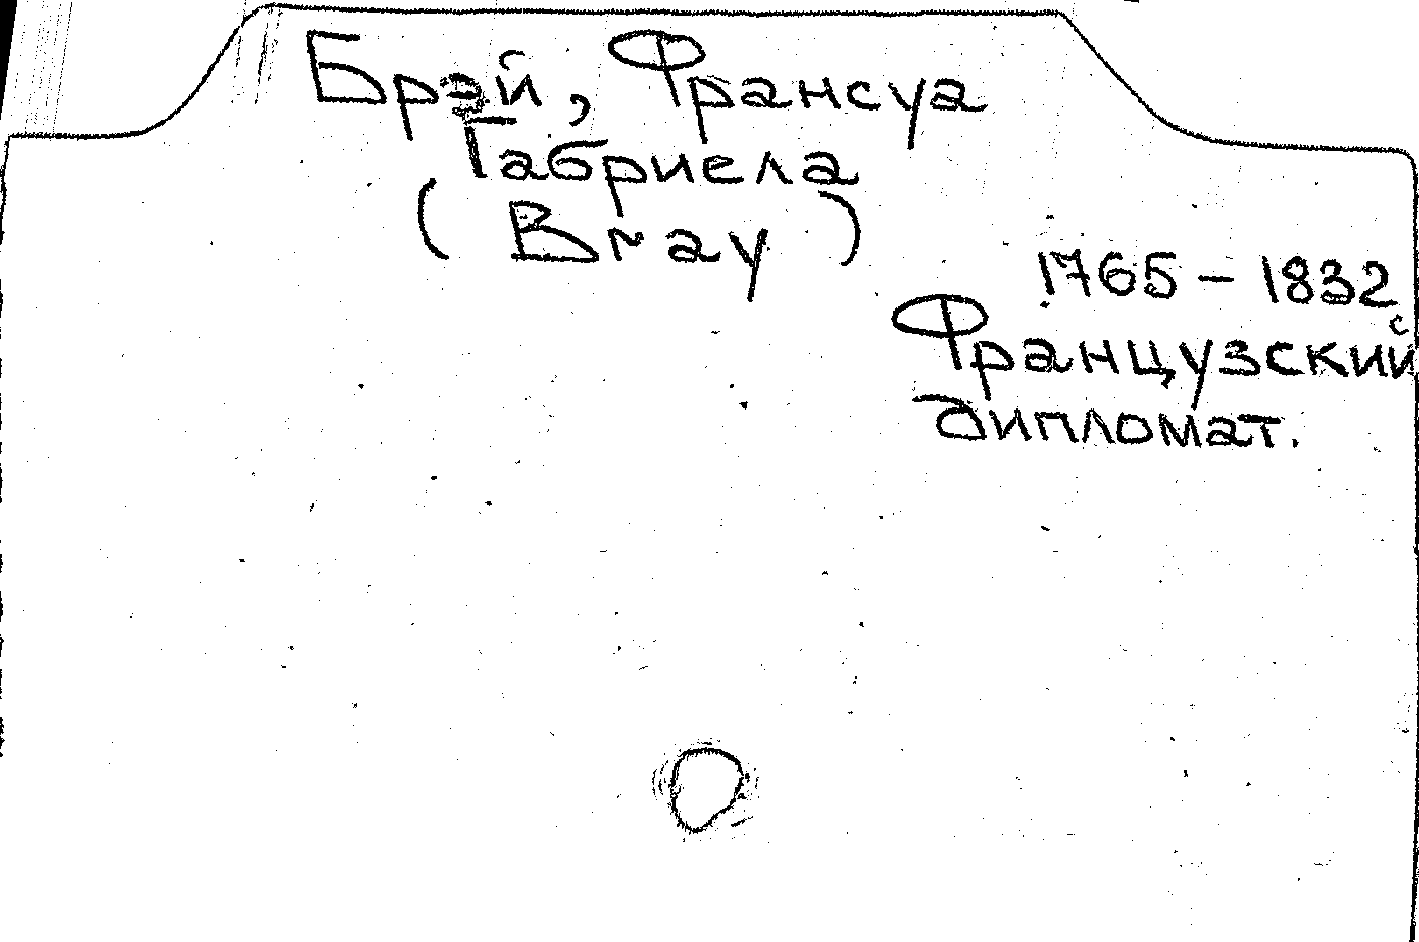 Брэй, Франсуа
Габриела
(Bray)
1765 – 1832
Французский
дипломат.